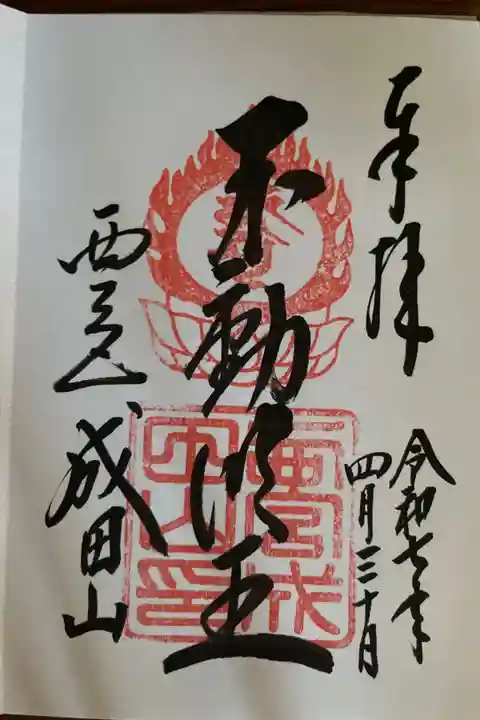 奉拝
令和七年
四月三十日
不動明王
成田山